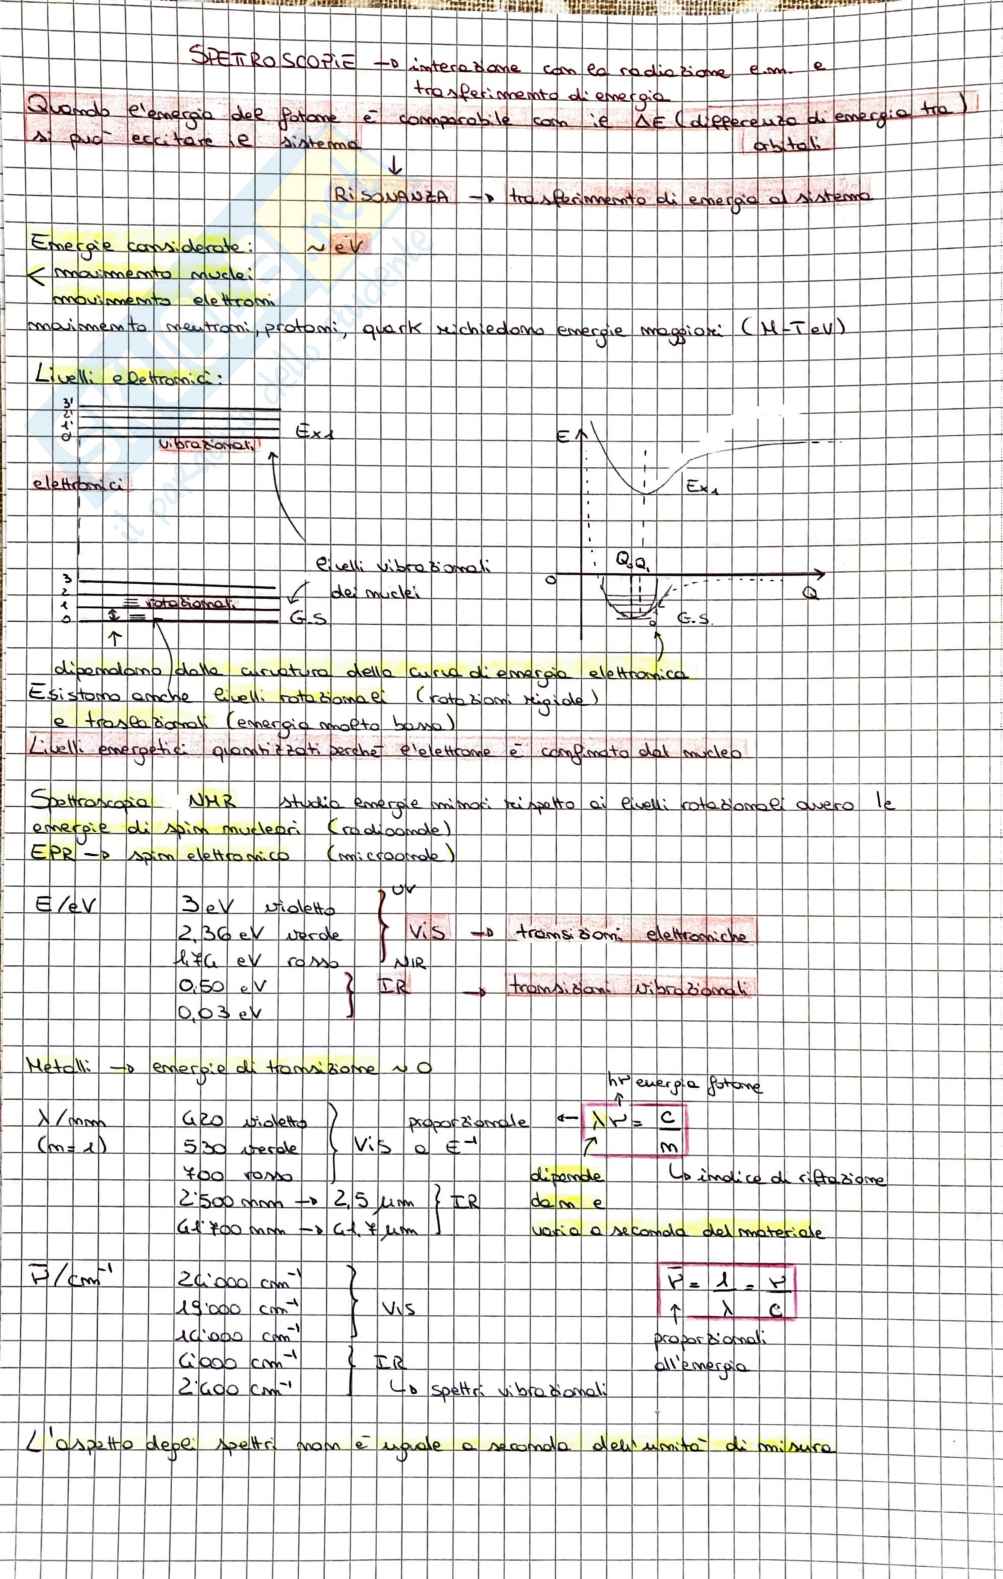 SPETTROSCOPIE → interazione con la radiazione e.m. e
trasferimento di energia
Quando l'energia del fotone è comparabile con il ΔE (differenza di energia tra
si può eccitare il sistema orbitali)
↓
RISONANZA → trasferimento di energia al sistema
Energie considerate: ~ eV
< movimento nuclei
movimento elettroni
movimento neutroni, protoni, quark richiedono energie maggiori (M-TeV)
Livelli elettronici:
3'
2'
1'
0'
vibrazionali
Ex1
elettronici
E
Ex1
livelli vibrazionali
dei nuclei
3
2
1
0
rotazionali
G.S
0
Q0Q1
Q
G.S.
dipendono dalla curvatura della curva di energia elettronica
Esistono anche livelli rotazionali (rotazioni rigide)
e traslazionali (energia molto bassa)
Livelli energetici quantizzati perché l'elettrone è confinato dal nucleo
Spettroscopia NMR studia energie minori rispetto ai livelli rotazionali ovvero le
energie di spin nucleari (radioonde)
EPR → spin elettronico (microonde)
E/eV 3 eV violetto UV
2,36 eV verde Vis → transizioni elettroniche
1,74 eV rosso NIR
0,50 eV IR → transizioni vibrazionali
0,03 eV
Metalli → energie di transizione ~ 0
hν energia fotone
λ/nm 420 violetto proporzionale ← λν = c/n
(n=1) 530 verde Vis a E⁻¹
700 rosso dipende ↳ indice di rifrazione
2'500 nm → 2,5 μm IR da n e
41'700 nm → 41,7 μm varia a seconda del materiale
ν̄/cm⁻¹ 24'000 cm⁻¹ ν̄ = 1/λ = ν/c
19'000 cm⁻¹ Vis
14'000 cm⁻¹ proporzionali
4'000 cm⁻¹ IR all'energia
2'400 cm⁻¹ ↳ spettri vibrazionali
L'aspetto degli spettri non è uguale a seconda dell'unità di misura